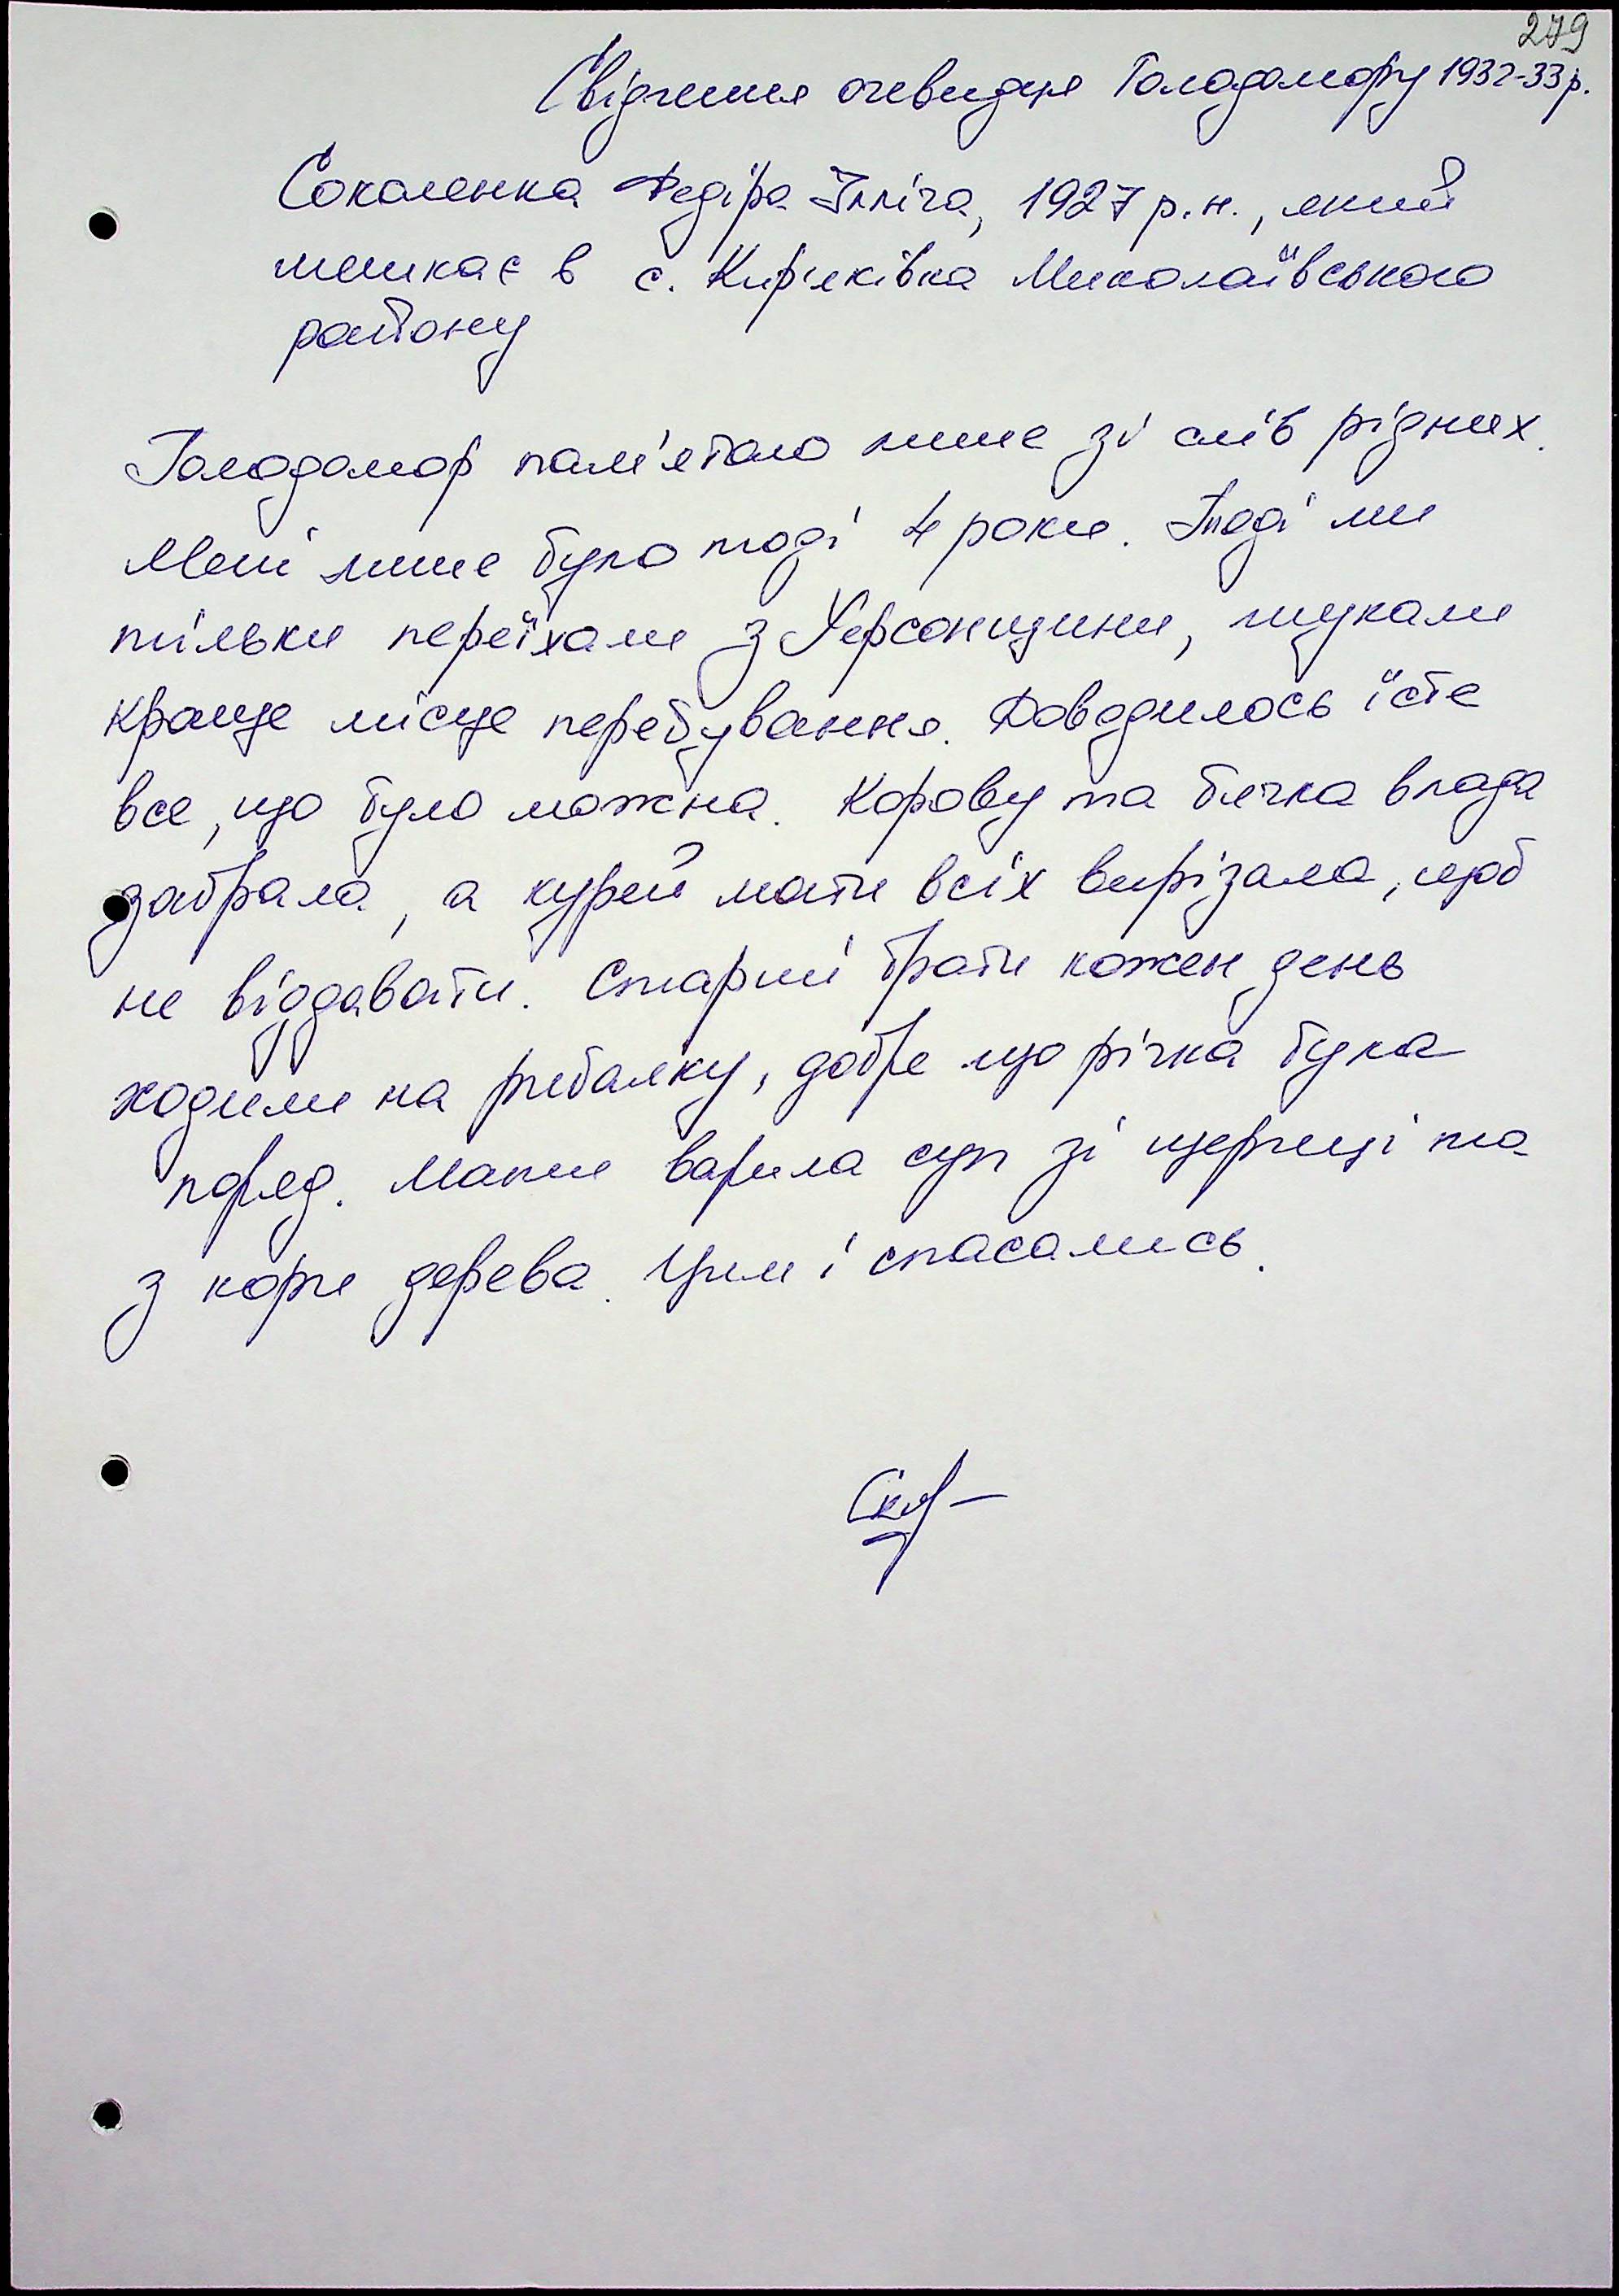 279
Свідчення очевидця Голодомору 1932-33р.
Соколенка Федіра Ілліча, 1927 р.н., який
мешкає в с. Кир'яківка Миколаївського
району
Голодомор пам'ятаю лише зі слів рідних.
Мені лише було тоді 4 роки. Тоді ми
тільки переїхали з Херсонщини, шукали
краще місце перебування. Доводилось їсти
все, що було можна. Корову та бичка влада
забрала, а курей мати всіх вирізала, щоб
не віддавати. Старші брати кожен день
ходили на рибалку, добре що річка була
поряд. Мати варила суп зі щериці та
з кори дерева. Цим і спасались.